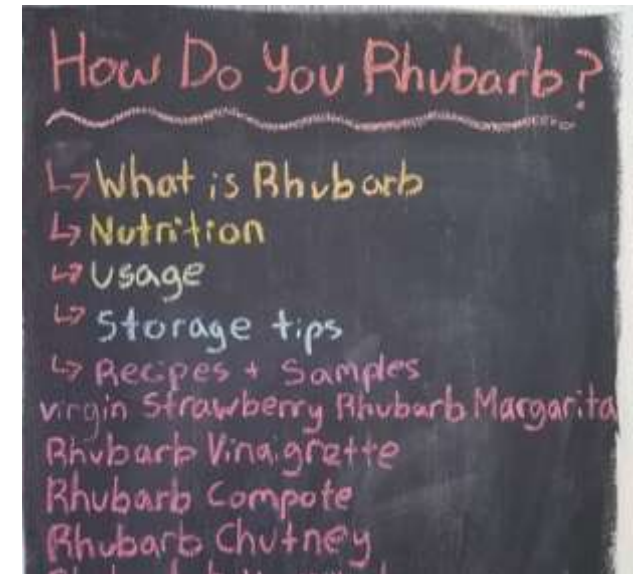 How Do You Rhubarb?
↳ What is Rhubarb
↳ Nutrition
↳ Usage
↳ Storage tips
↳ Recipes + Samples
virgin Strawberry Rhubarb Margarita
Rhubarb Vinaigrette
Rhubarb Compote
Rhubarb Chutney